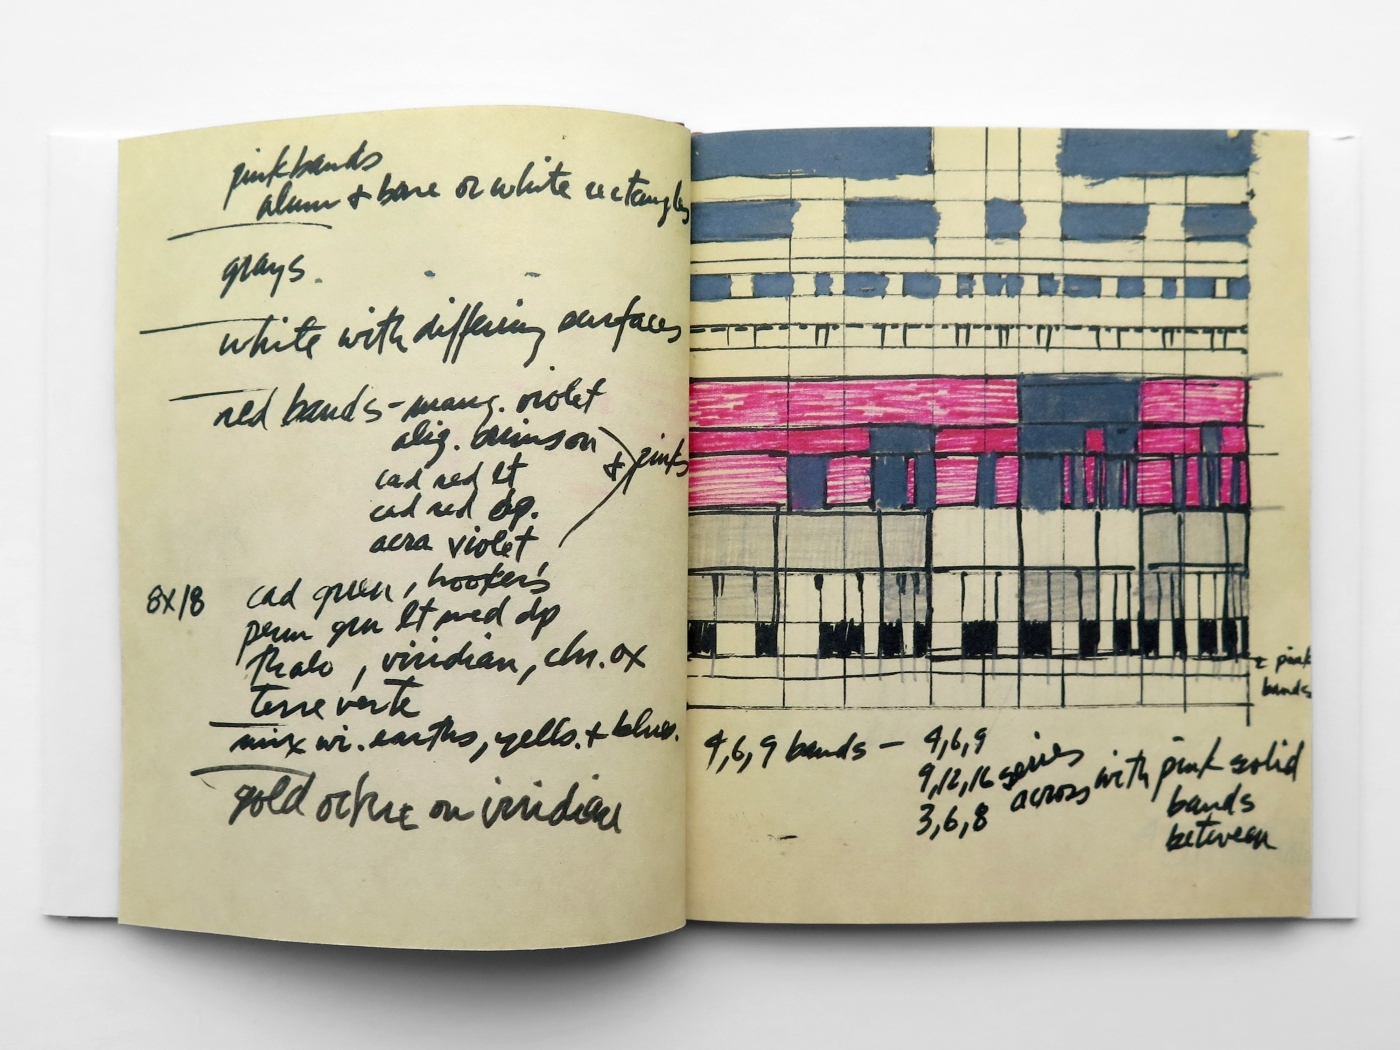 pink bands
alum + bone or white rectangles
grays.
white with differing surfaces
red bands - mang. violet
aliz. crimson
+ pinks
cad red lt
cad red dp.
acra violet
8x18
cad green, hooker's
perm grn lt med dp
thalo, viridian, chr. ox
terre verte
mix wi. earths, yells. + blues.
gold ochre on viridian
pink
bands
4,6,9 bands - 4,6,9
9,12,16 series
3,6,8 across with pink solid
bands
between